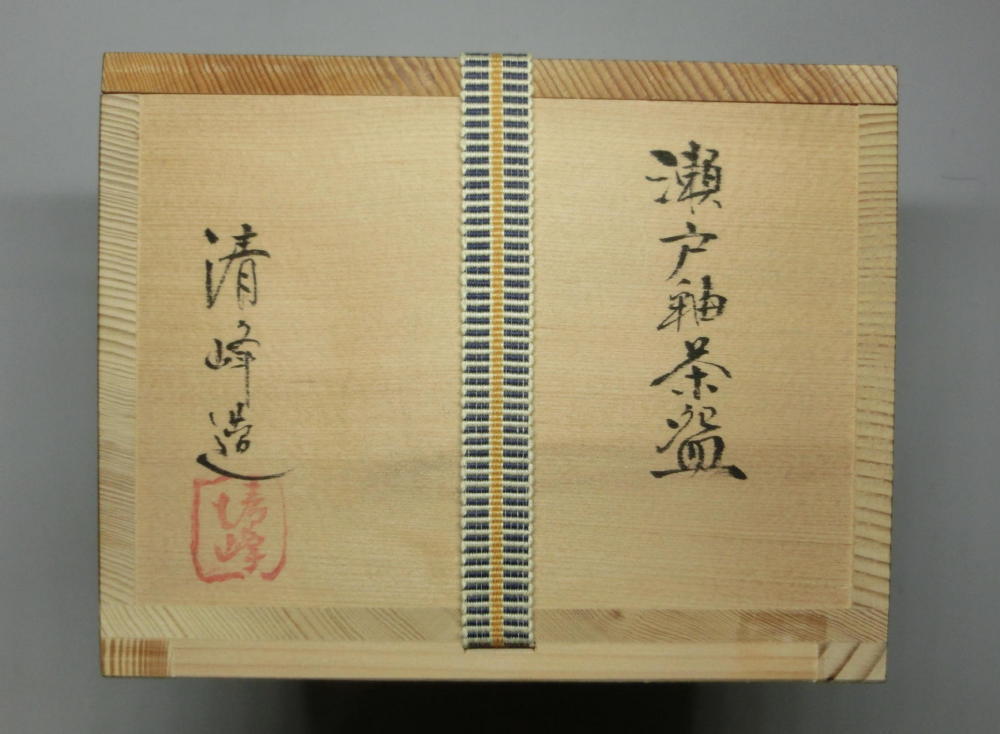 瀬戸釉茶盌
清峰造
清峰